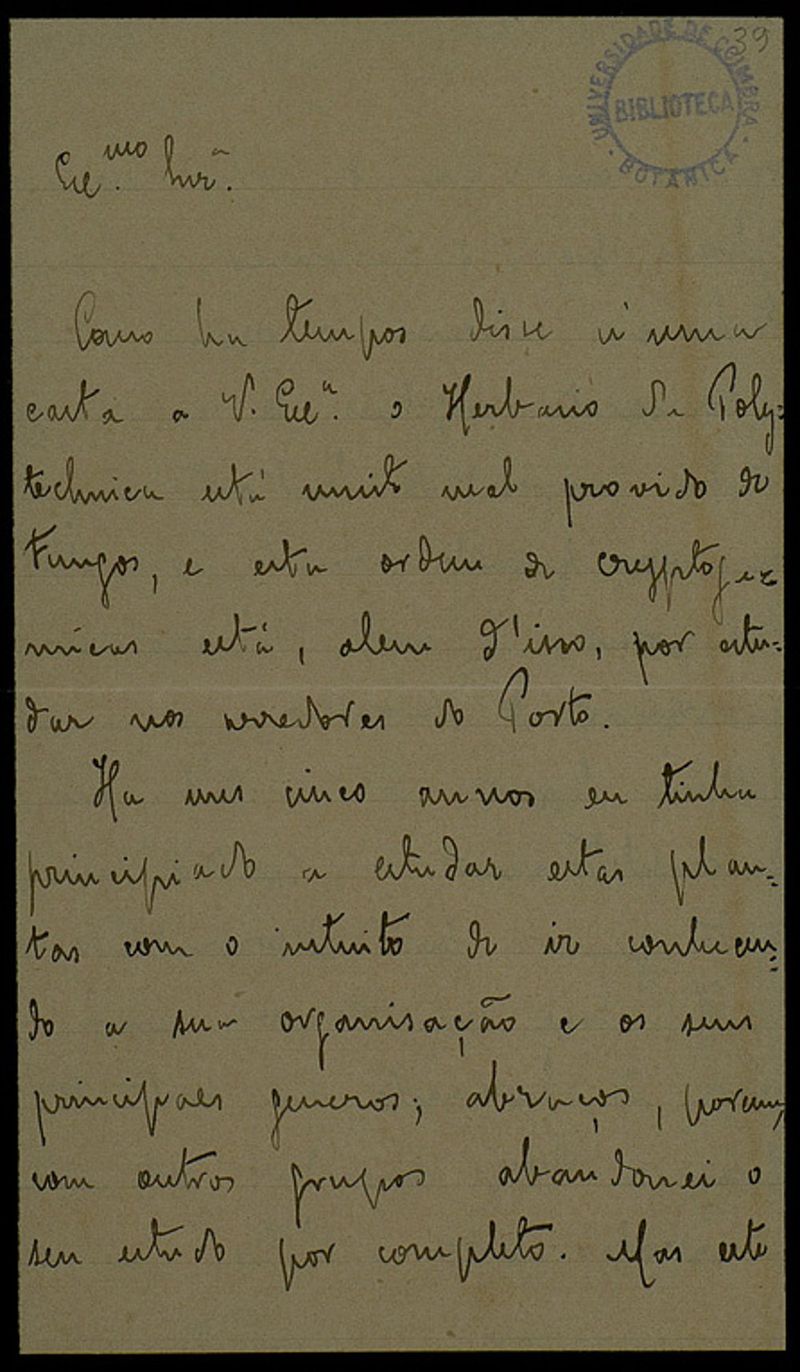 39
UNIVERSIDADE DE COIMBRA
BIBLIOTECA
BOTANICA
Exc.mo Snr.
Como ha tempos disse n'uma
carta a V. Exc.a o Herbario da Poly-
technica está muito mal provido de
fungos, e esta ordem de cryptoga-
micas está, alem d'isso, por estu-
dar nos arredores do Porto.
Ha uns cinco annos eu tinha
principiado a estudar estas plan-
tas com o intuito de ir conhecen-
do a sua organisação e os seus
principaes generos; a braços, porem,
com outros grupos abandonei o
seu estudo por completo. Mas este